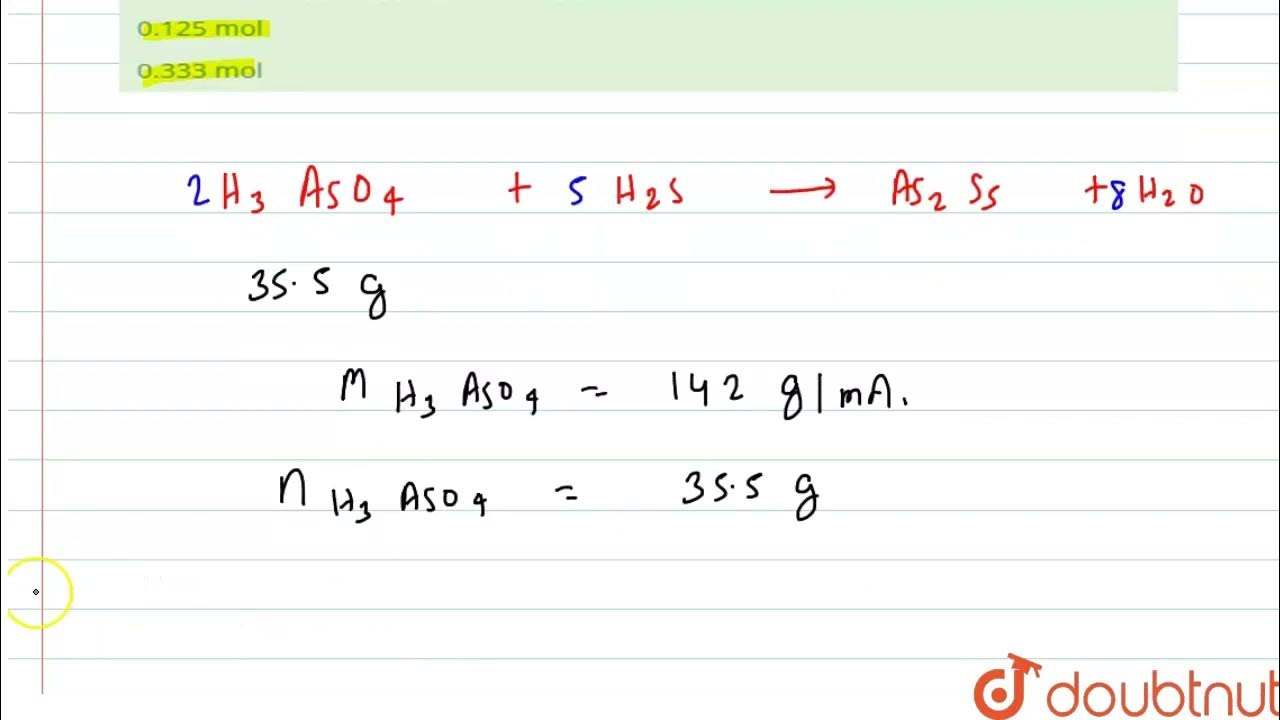 0.125 mol
0.333 mol
2 H3 AsO4 + 5 H2S → As2 S5 + 8 H2O
35.5 g
M H3 AsO4 = 142 g/mol.
n H3 AsO4 = 35.5 g
doubtnut